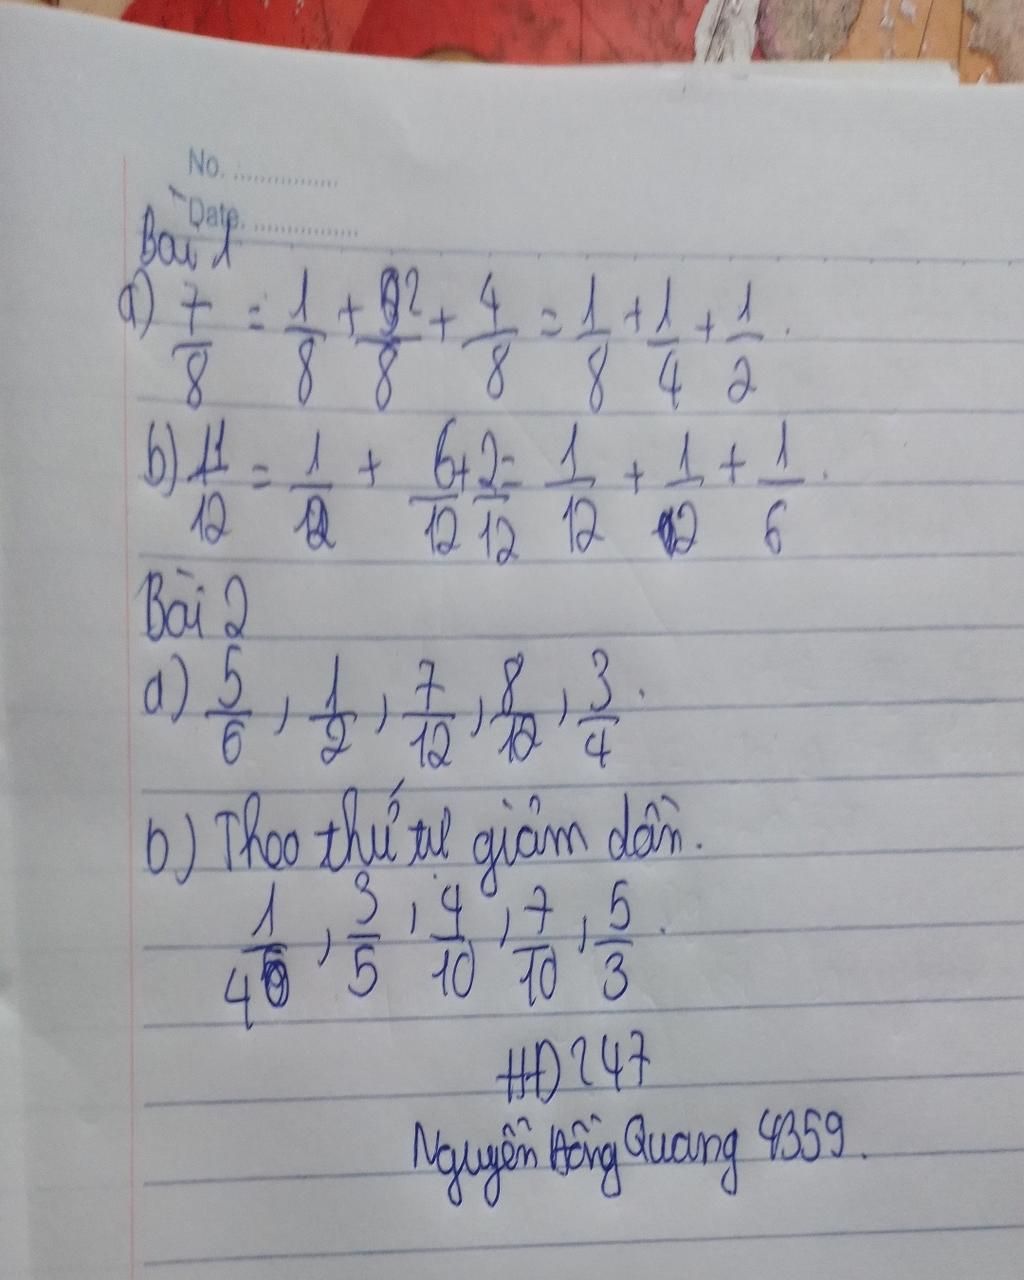 No. ...............
Date. ...............
Bài 1
a) 7/8 = 1/8 + 2/8 + 4/8 = 1/8 + 1/4 + 1/2.
b) 11/12 = 1/12 + 6/12 + 2/12 = 1/12 + 1/2 + 1/6.
Bài 2
a) 5/6, 1/2, 7/12, 8/12, 3/4.
b) Theo thứ tự giảm dần.
1/4, 3/5, 4/10, 7/10, 5/3.
HĐ247
Nguyễn Hồng Quang 4359.